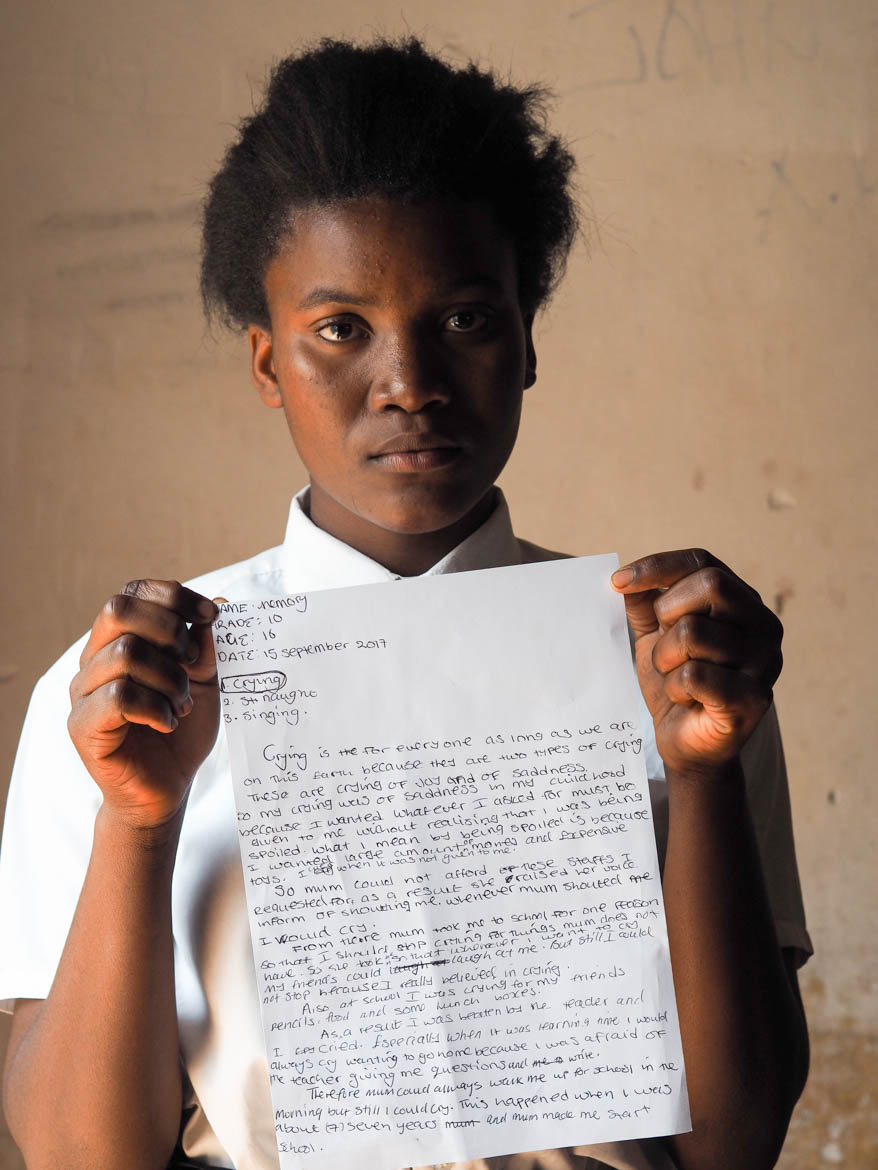 NAME: Memory
GRADE: 10
AGE: 16
DATE: 15 September 2017
1. Crying
2. St. naught
3. Singing.
Crying is the for everyone as long as we are
on this Earth because they are two types of crying
These are crying of Joy and of saddness.
So my crying was of saddness in my childhood
because I wanted whatever I asked for must be
given to me without realising that I was being
spoiled. What I mean by being spoiled is because
I wanted large amount of money and Expensive
toys. I cry when it was not given to me.
So mum could not afford of these stuffs I
requested for, as a result she raised her voice
inform of shouting me. whenever mum shouted me
I would cry.
From there mum took me to school for one reason
so that I should stop crying for things mum does not
have. So she took in that whenever I want to cry
my friends could laugh at laugh at me. But still I could
not stop because I really believed in crying.
Also at school I was crying for my friends
pencils, food and some lunch boxes.
As, a result I was beaten by the teacher and
I cry cried. Especially when it was learning time I would
always cry wanting to go home because I was afraid of
the teacher giving me questions and me to write.
Therefore mum could always wack me up for school in the
morning but still I could cry. This happened when I was
about (7) seven years mum and mum made me start
School.